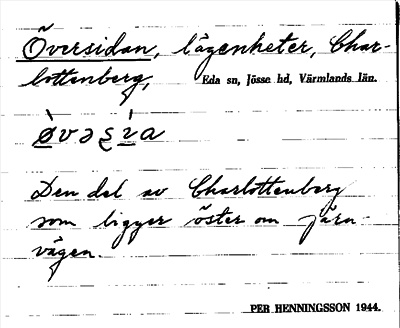 Översidan, lägenheter, Char-
lottenberg, Eda sn, Jösse hd, Värmlands län.
Den del av Charlottenberg
som ligger öster om järn-
vägen.
PER HENNINGSSON 1944.